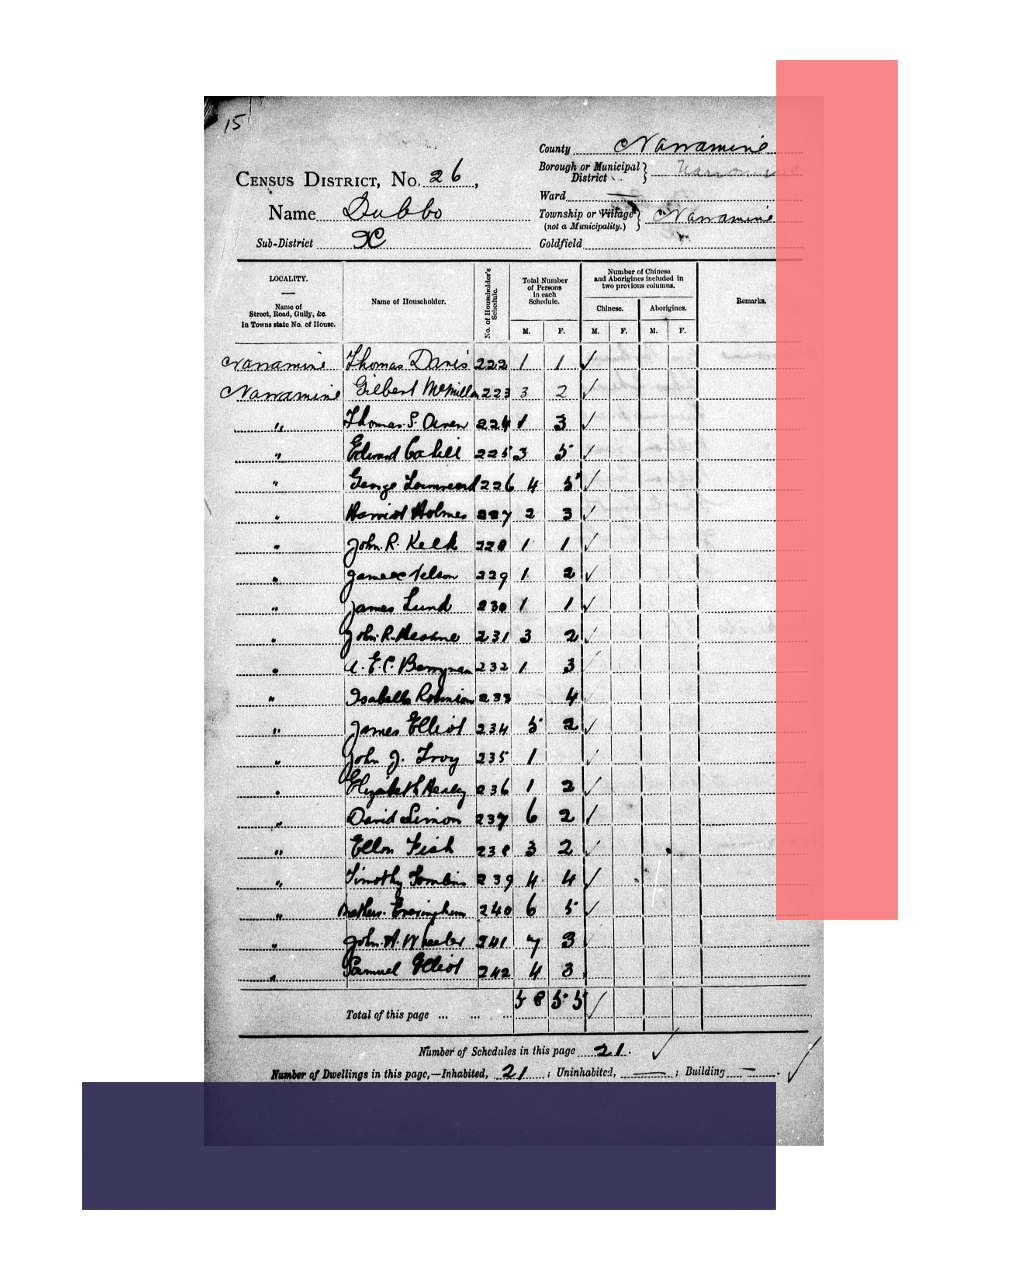 15
County Narramine
Borough or Municipal District Narromine
CENSUS DISTRICT, No. 26,
Ward
Name Dubbo
Township or Village (not a Municipality.) Narramine
Sub-District
Goldfield
LOCALITY. Name of Street, Road, Gully, &c. In Towns state No. of House. Name of Householder. No. of Householder's Schedule. Total Number of Persons in each Schedule. Number of Chinese and Aborigines included in two previous columns. Remarks.
Chinese. Aborigines.
M. F. M. F. M. F.
Narramine Thomas Davis 222 1 1 ✓
Narramine Gilbert McMillan 223 3 2 ✓
" Thomas S. 224 1 3 ✓
" Edward Cahill 225 3 5 ✓
" George 226 4 5 ✓
" Harriot Holmes 227 2 3 ✓
" John R. Kelk 228 1 1 ✓
" James Nelson 229 1 2 ✓
" James Lund 230 1 1 ✓
" John R. 231 3 2 ✓
" A. E. C. Berryman 232 1 3 ✓
" Isabella Robinson 233 4 ✓
" James Elliot 234 5 2 ✓
" John J. Troy 235 1 ✓
" Elizabeth Healey 236 1 2 ✓
" David Simon 237 6 2 ✓
" Ellen Fish 238 3 2 ✓
" Timothy Tomkins 239 4 4 ✓
" Everingham 240 6 5 ✓
" John A. Wheeler 241 7 3 ✓
" Samuel Elliot 242 4 3
Total of this page ... ... ... 58 55 ✓
Number of Schedules in this page 21. ✓
Number of Dwellings in this page,—Inhabited, 21 ; Uninhabited, — ; Building — . ✓